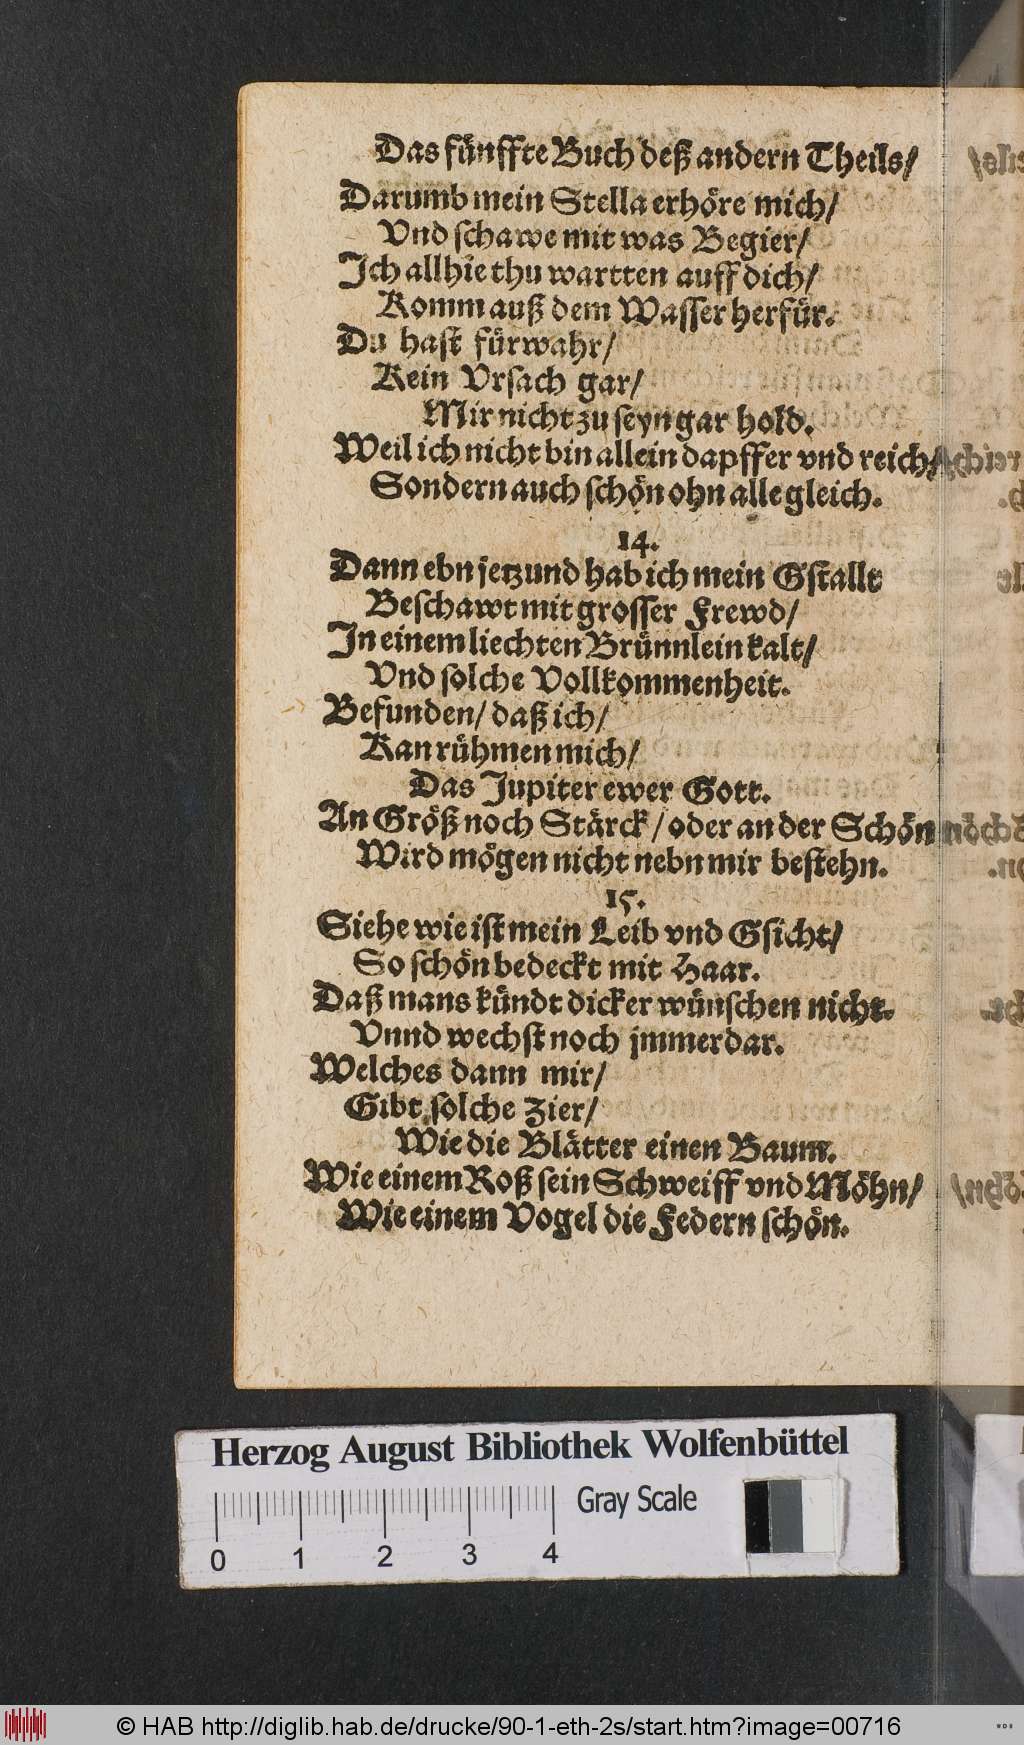 Das fünffte Buch deß andern Theils/
Darumb mein Stella erhöre mich/
Vnd schawe mit was Begier/
Ich allhie thu wartten auff dich/
Komm auß dem Wasser herfür.
Du hast fürwahr/
Kein Vrsach gar/
Mir nicht zu seyn gar hold.
Weil ich nicht bin allein dapffer vnd reich/
Sondern auch schön ohn alle gleich.
14.
Dann ebn jetzund hab ich mein Gstallt
Beschawt mit grosser Frewd/
In einem liechten Brünnlein kalt/
Vnd solche Vollkommenheit.
Befunden/ daß ich/
Kan rühmen mich/
Das Jupiter ewer Gott.
An Größ noch Stärck/ oder an der Schön
Wird mögen nicht nebn mir bestehn.
15.
Siehe wie ist mein Leib vnd Gsicht/
So schön bedeckt mit Haar.
Daß mans kündt dicker wünschen nicht.
Vnnd wechst noch jmmerdar.
Welches dann mir/
Gibt solche Zier/
Wie die Blätter einen Baum.
Wie einem Roß sein Schweiff vnd Möhn/
Wie einem Vogel die Federn schön.
Herzog August Bibliothek Wolfenbüttel
Gray Scale
0 1 2 3 4
© HAB http://diglib.hab.de/drucke/90-1-eth-2s/start.htm?image=00716